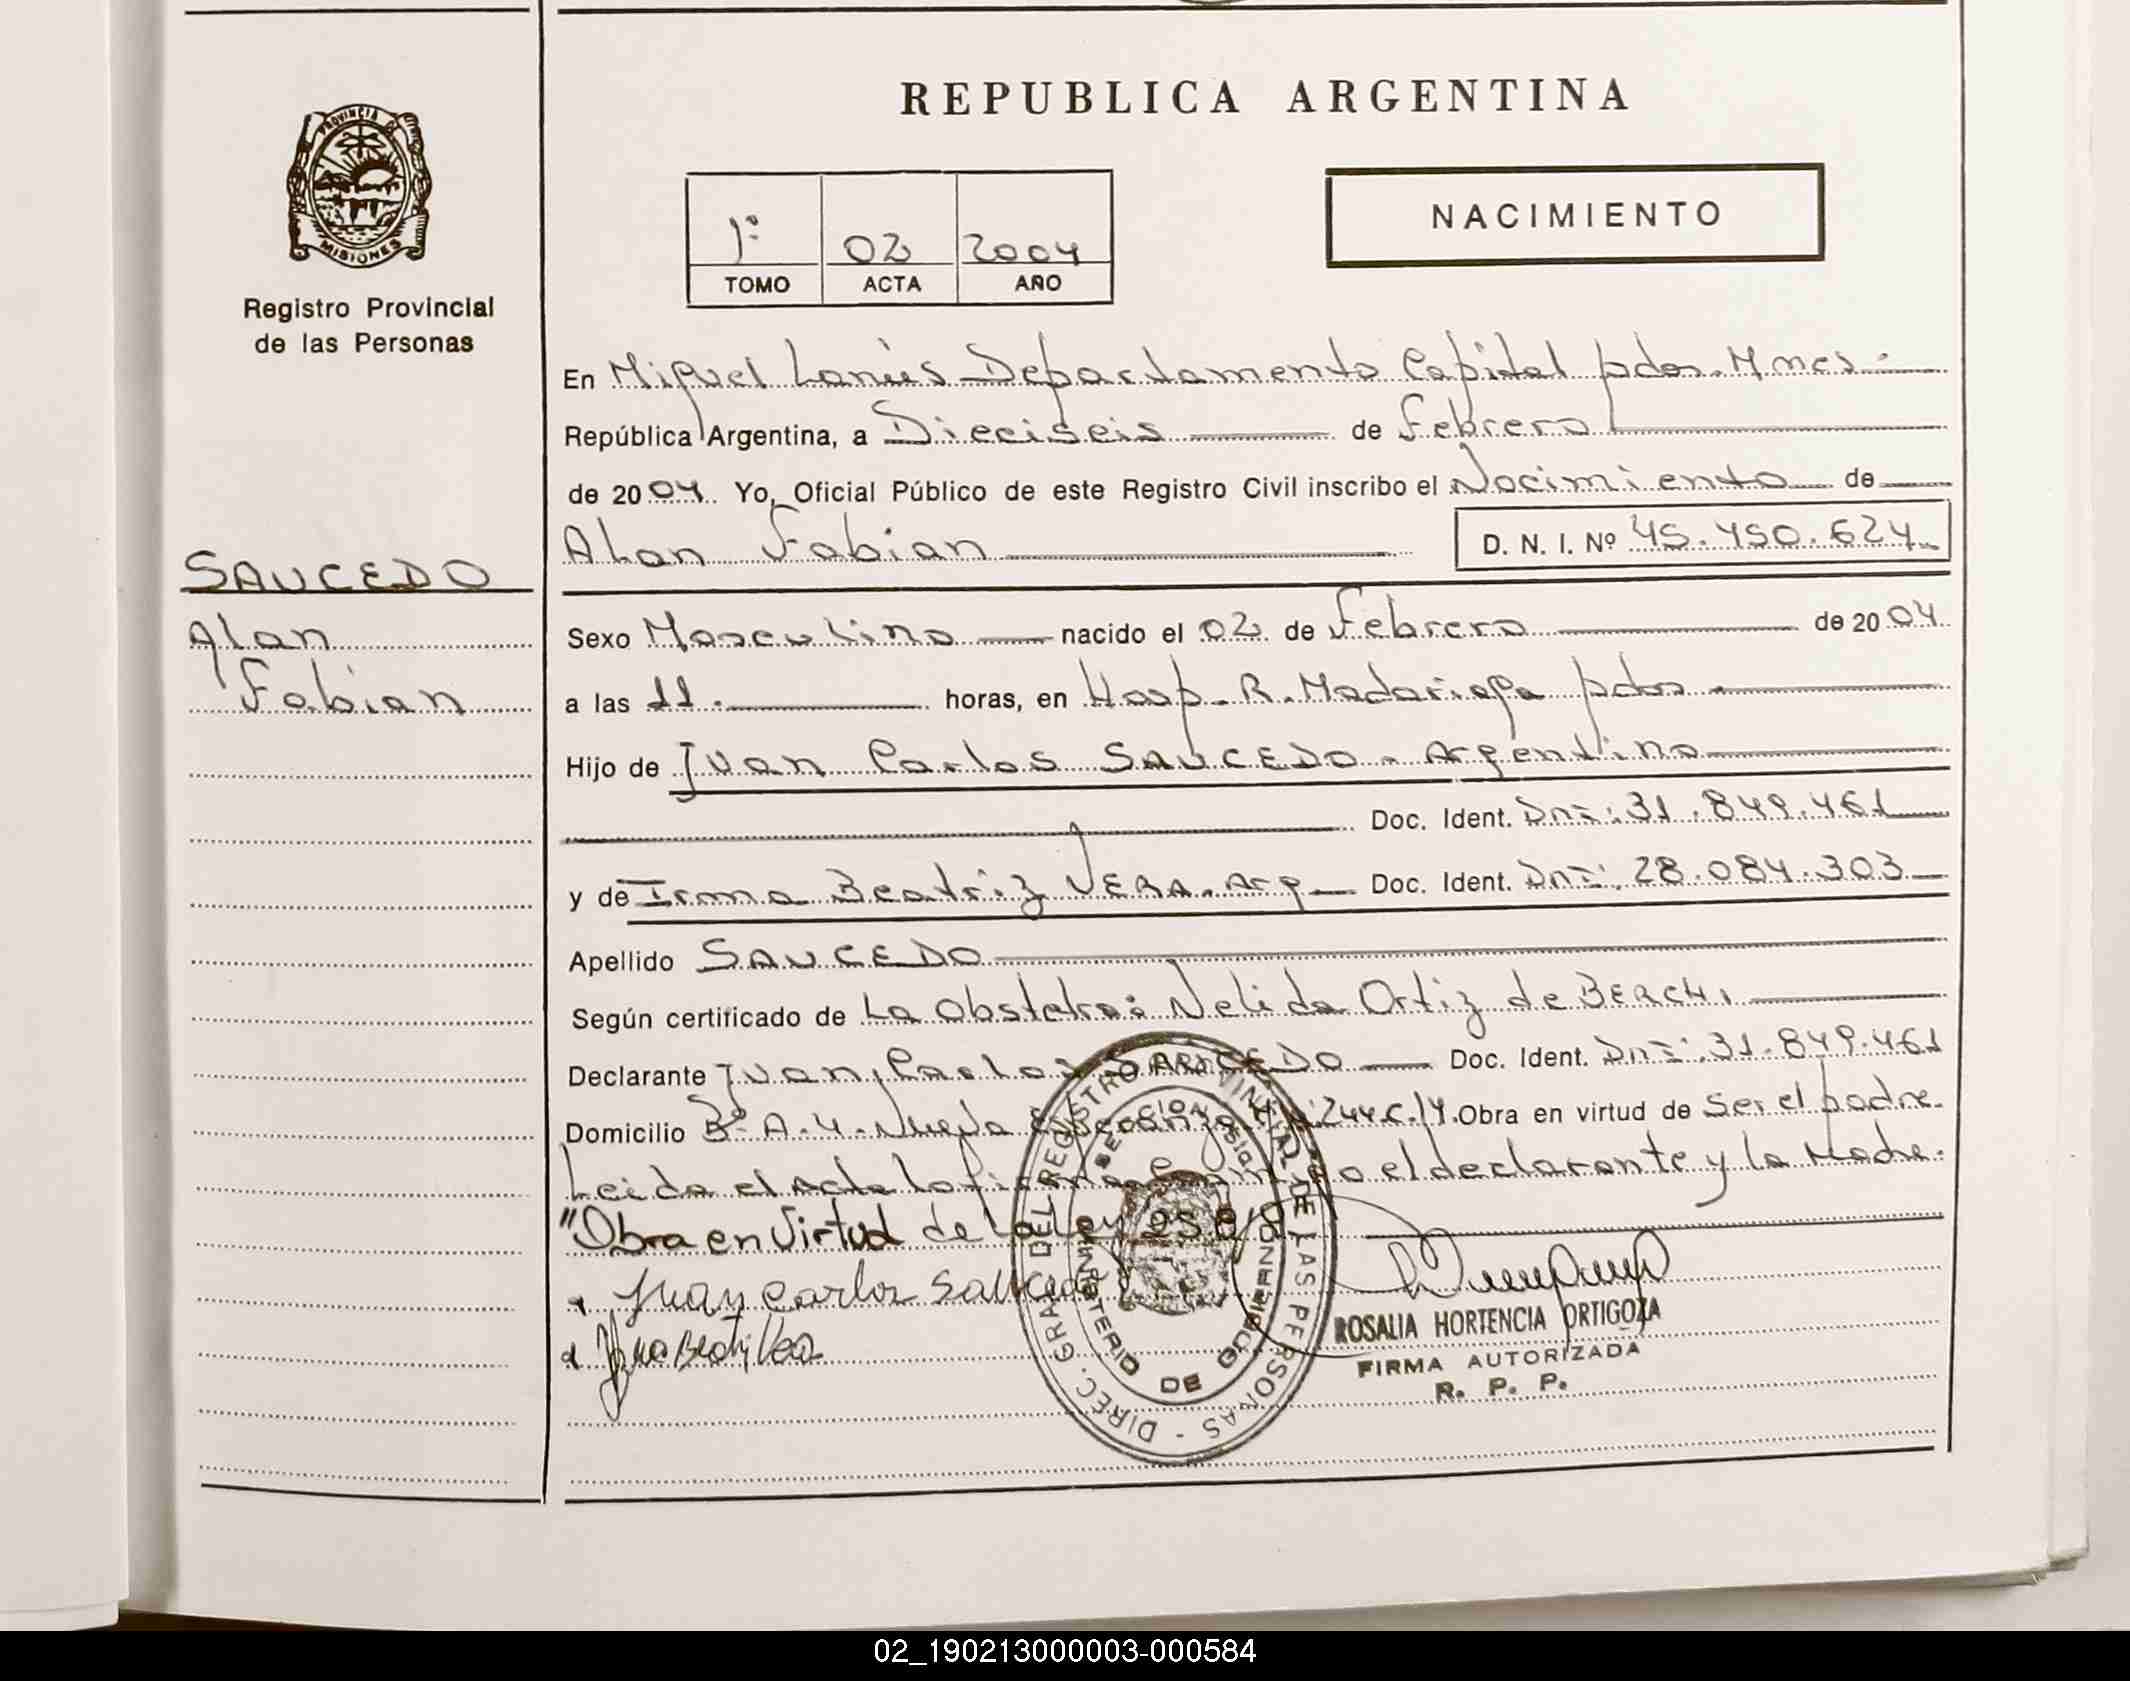 REPUBLICA ARGENTINA
PROVINCIA DE
MISIONES
Registro Provincial
de las Personas
1º 02 2004
TOMO ACTA AÑO
NACIMIENTO
En Miguel Lanús Departamento Capital pdas. Mnes
República Argentina, a Dieciseis de Febrero
de 2004. Yo, Oficial Público de este Registro Civil inscribo el Nacimiento de
Alan Fabian D. N. I. Nº 45.450.624
SAUCEDO
Alan
Fabian
Sexo Masculino nacido el 02 de Febrero de 2004
a las 11. horas, en Hosp. R. Madariaga pdas
Hijo de Juan Carlos SAUCEDO. Argentino
Doc. Ident. Dni: 31.849.461
y de Irma Beatriz VERA. Arg Doc. Ident. Dni: 28.084.303
Apellido SAUCEDO
Según certificado de La Obstetra: Nelida Ortiz de BERCHI
Declarante Juan Carlos SAUCEDO Doc. Ident. Dni: 31.849.461
Domicilio Bº A-4. Nueva Esperanza 244 C.14. Obra en virtud de Ser el padre.
Leida el Acta la firma el declarante y la Madre.
"Obra en Virtud de La Ley
Juan Carlos Saucedo
DIREC. GRAL. DEL REGISTRO PROVINCIAL DE LAS PERSONAS
MINISTERIO DE GOBIERNO
ROSALIA HORTENCIA ORTIGOZA
FIRMA AUTORIZADA
R. P. P.
02_190213000003-000584